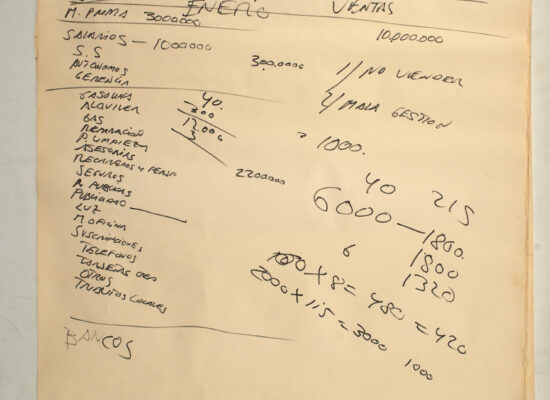 ENERO VENTAS
M. PRIMA 3000000 10.000.000
SALARIOS — 1000000 300.0000
S.S
AUTÓNOMOS
GERENCIA
1/ NO VENDER
2/ MALA GESTION
GASOLINA 40.
ALQUILER 300
GAS 12.000
REPARACIÓN 3
P. LIMPIEZA
ASESORIAS
RECARGOS Y PERSP 2200000
SEGUROS
R. PUBLICAS
PUBLICIDAD
LUZ
M OFICINA
SUSCRIPCIONES
TELEFONOS
OTROS
TRIBUTOS LOCALES
BANCOS
1000.
40 215
6000 — 1800.
6 1800
1320
100 × 8 = 480 = 420
2000 × 115 = 3000 1000